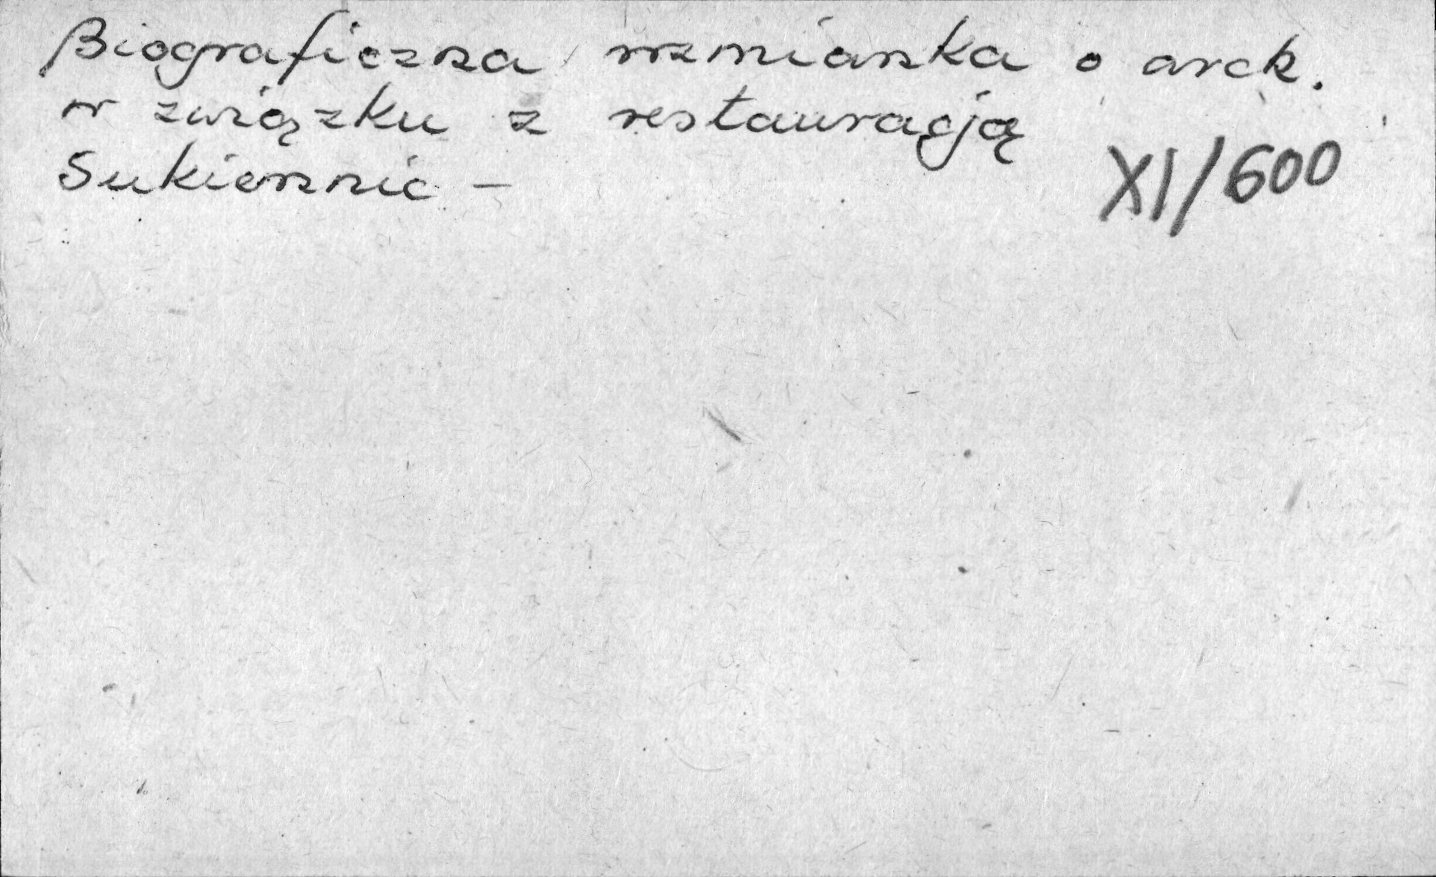 Biograficzna wzmianka o arch.
w związku z restauracją
Sukiennic –
XI/600